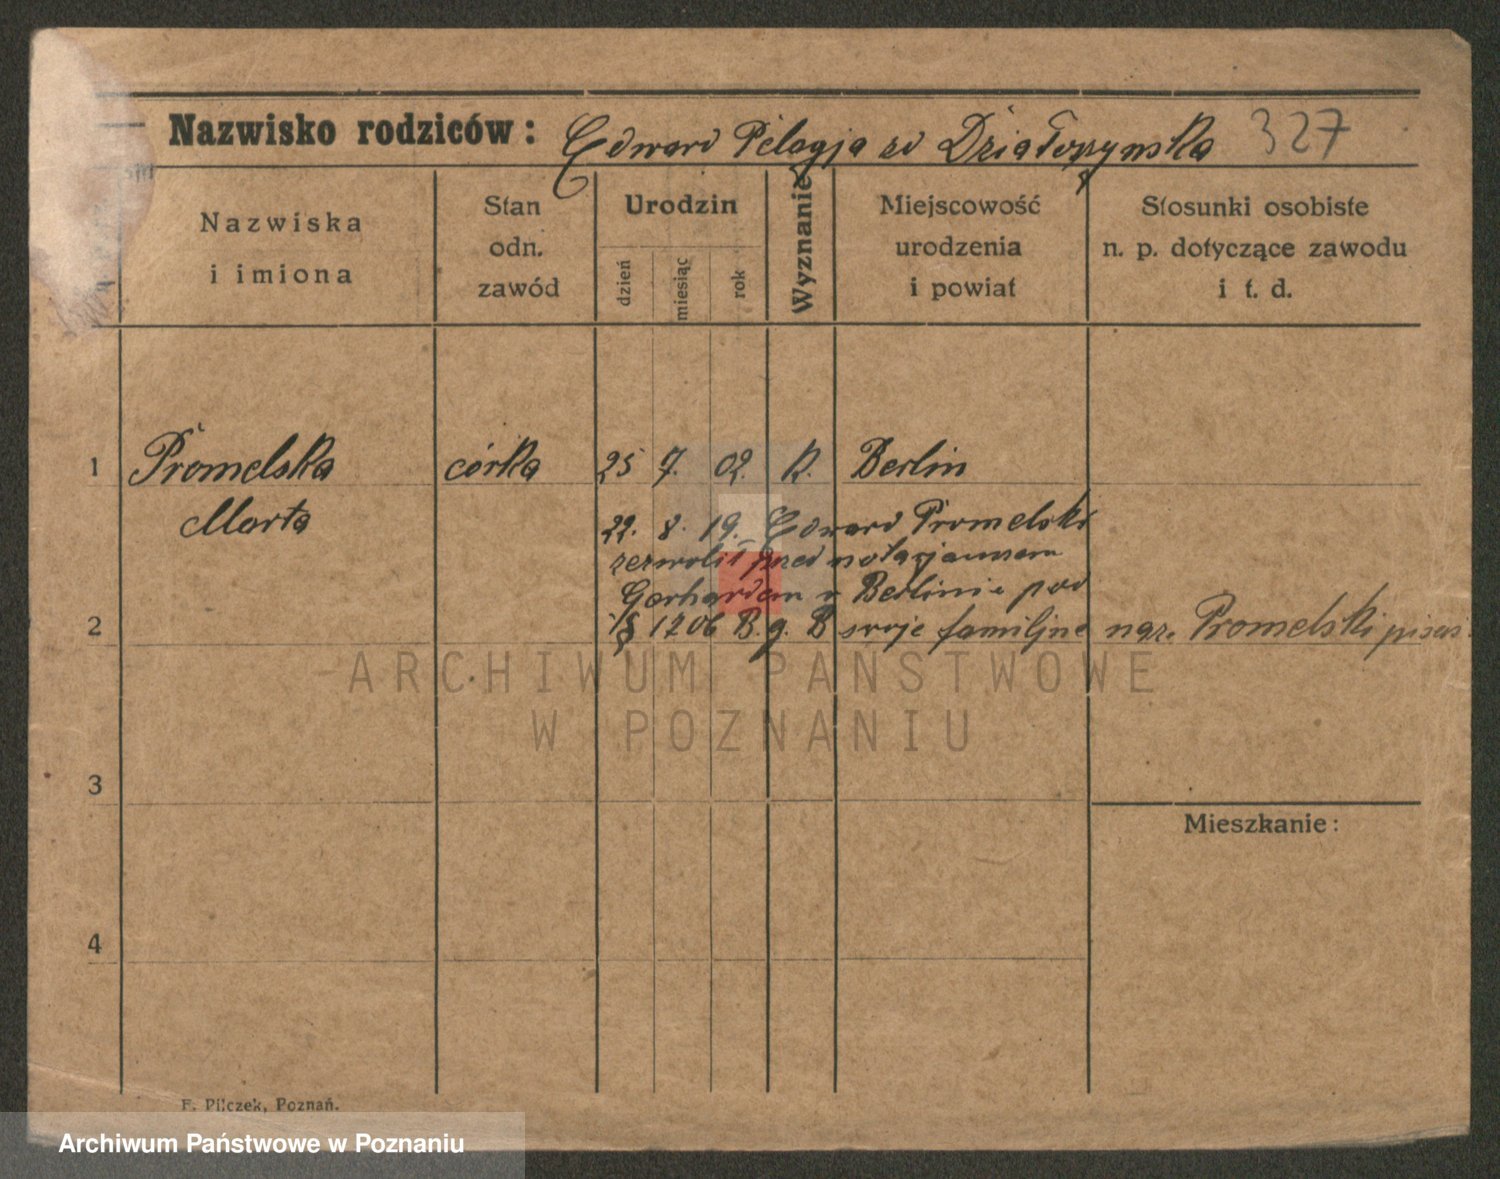 Nazwisko rodziców: Edward Pelagja zd Działoszynska 327
Nazwiska
i imiona
Stan
odn.
zawód
Urodzin
dzień
miesiąc
rok
Wyznanie
Miejscowość
urodzenia
i powiat
Stosunki osobiste
n. p. dotyczące zawodu
i t. d.
1 Promelska córka 25 7. 02. K. Berlin
Marta
22. 8. 19. Edward Promelski
zezwolił przed notarjuszem
Gerhardem w Berlinie pod
2 § 1706 B. g. B swoje familijne naz. Promelski
3
Mieszkanie:
4
F. Pilczek, Poznań.
ARCHIWUM PAŃSTWOWE
W POZNANIU
Archiwum Państwowe w Poznaniu